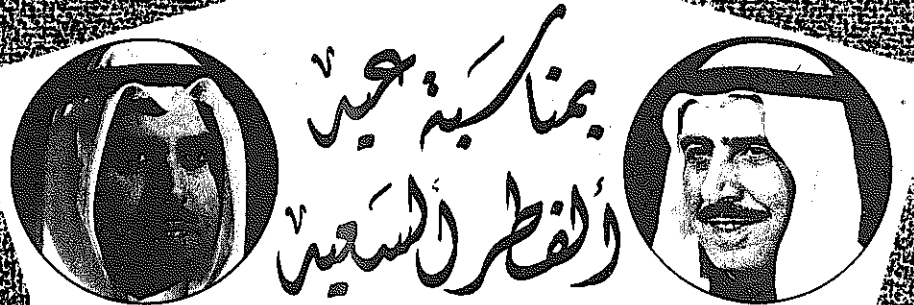 بمناسبة عيد
ألفطر ألسَعيد